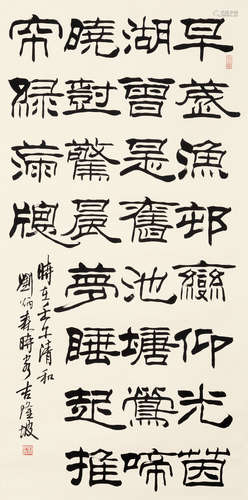 早盛漁邨變仰光茵
湖曾是舊池塘鶯啼
曉對驚晨夢睡起推
帘綠滿牕
時在壬午清和
劉炳森時客吉隆坡